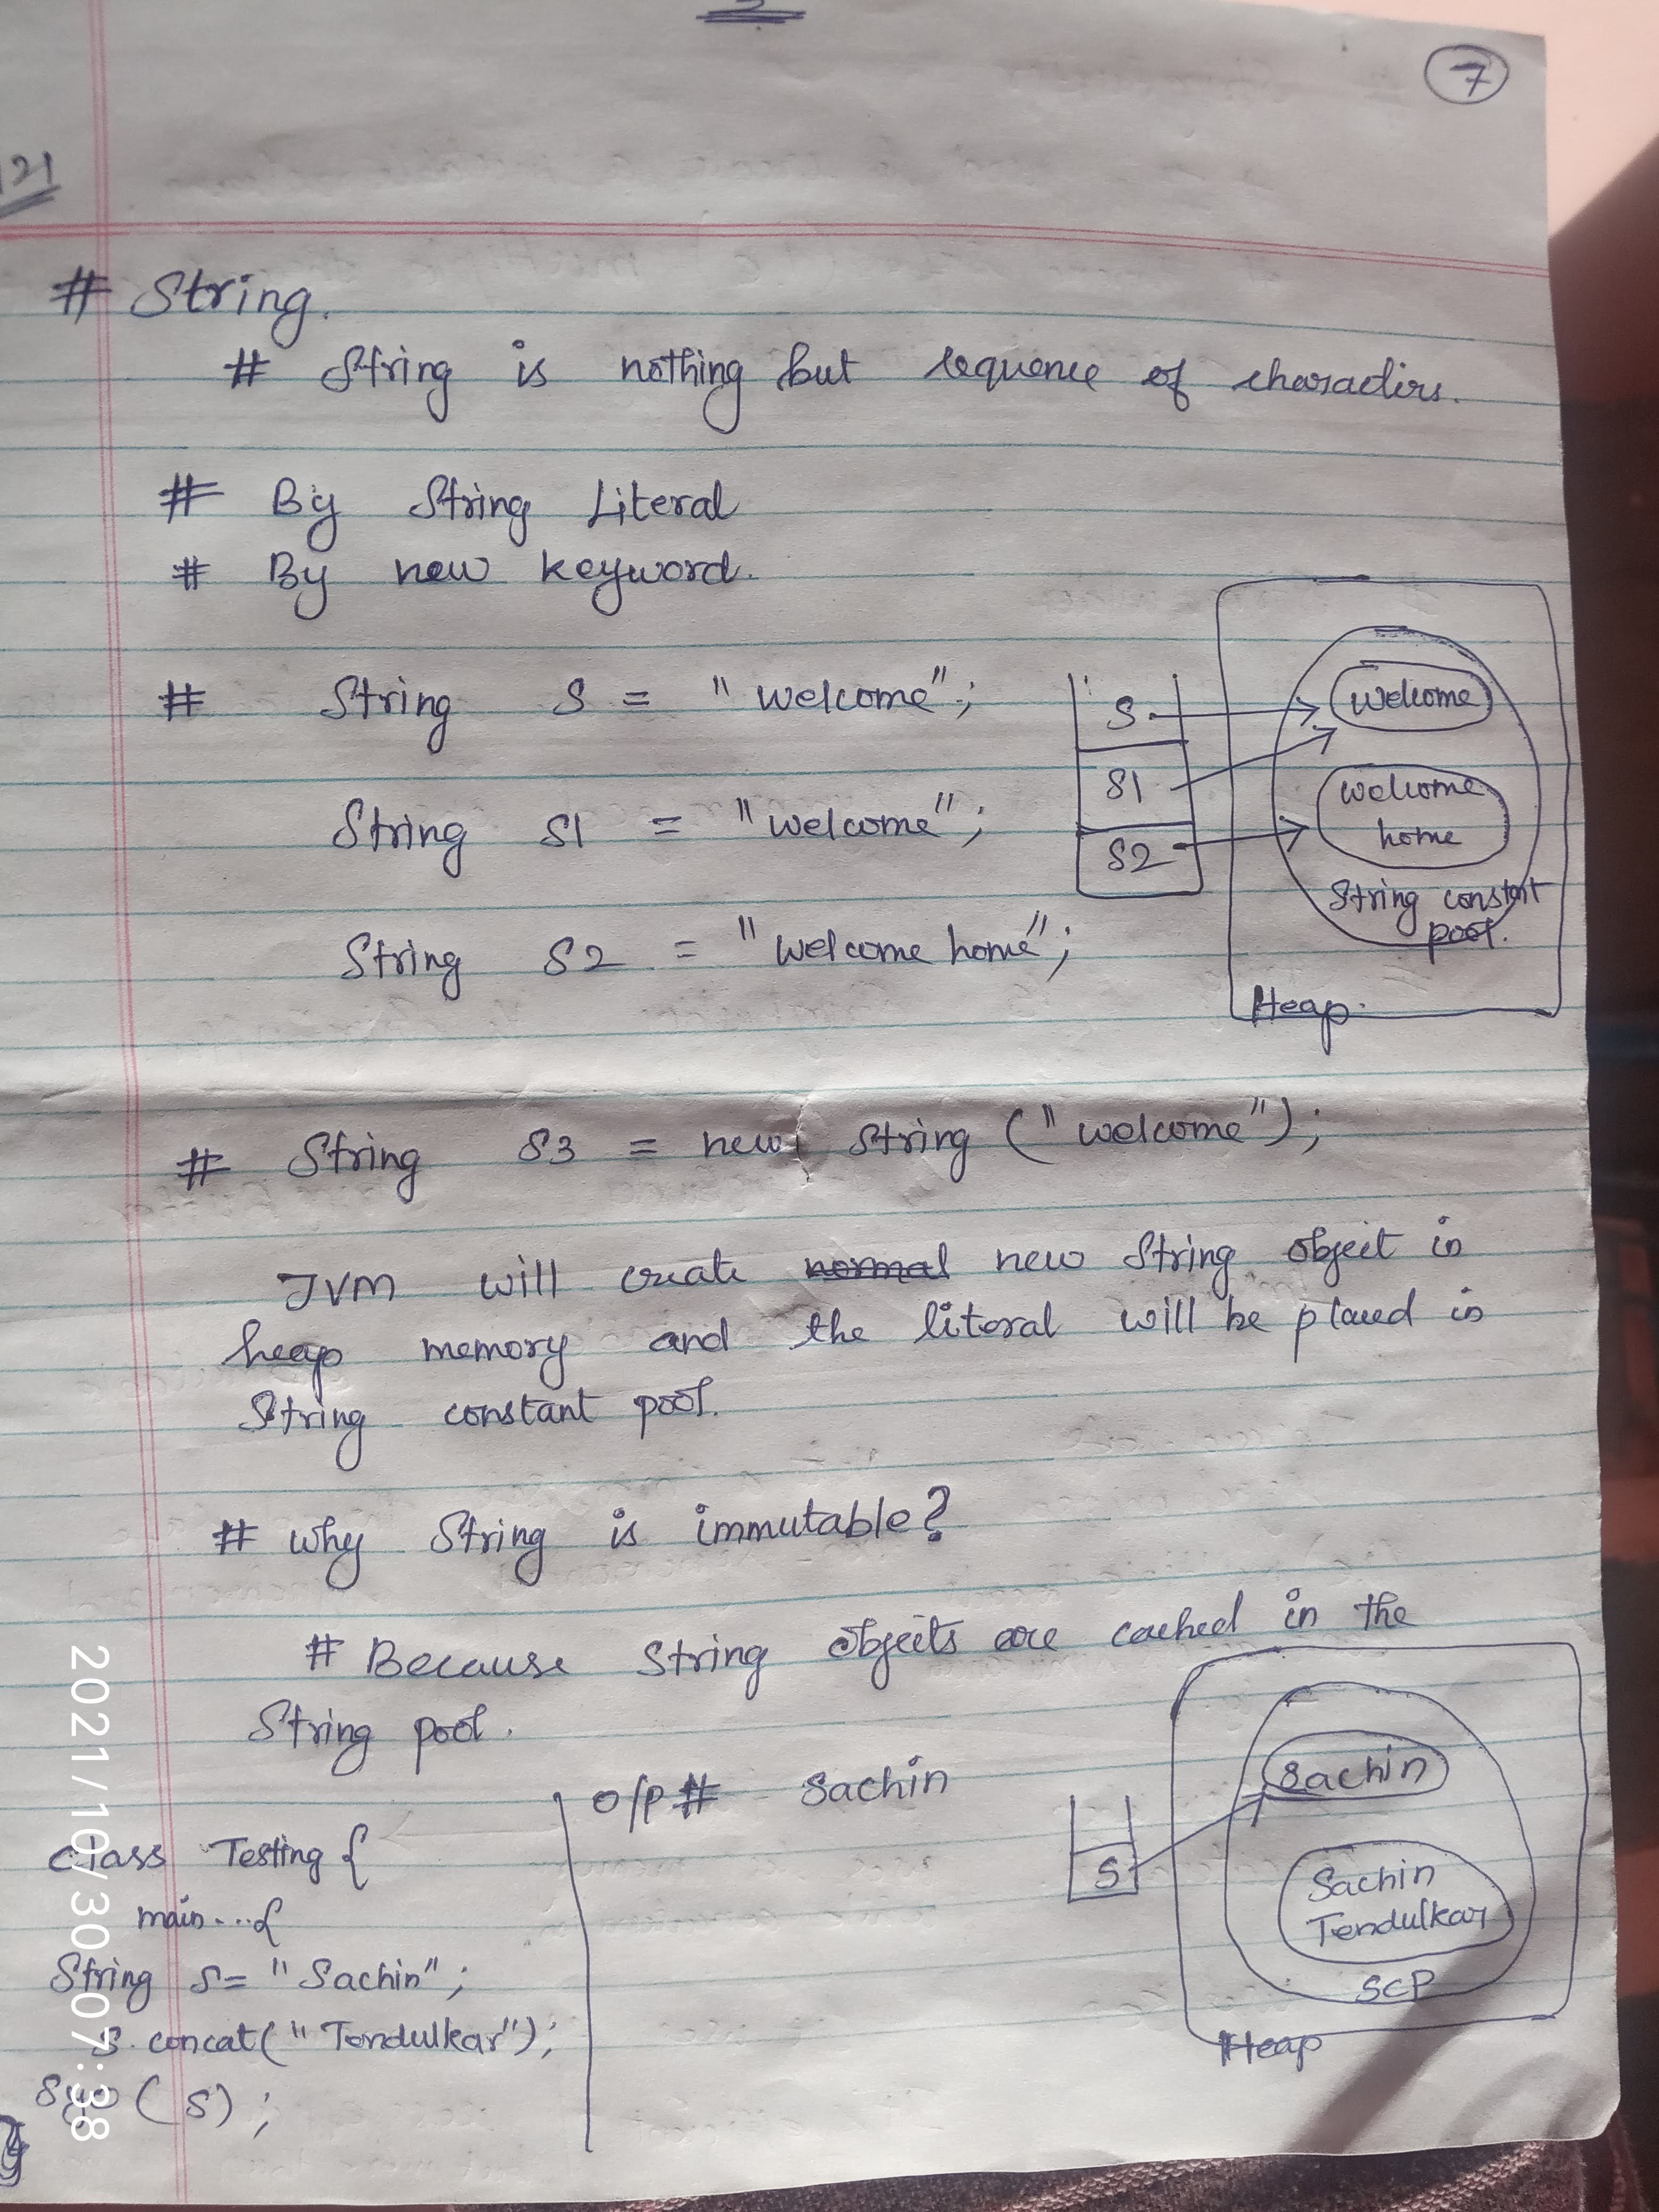 7
121
# String.
# String is nothing but sequence of characters.
# By String Literal
# By new keyword.
# String S = "welcome";
String S1 = "welcome";
String S2 = "welcome home";
S
S1
S2
welcome
welcome
home
String constant
pool.
Heap.
# String S3 = new String ("welcome");
JVM will create normal new String object in
heap memory and the literal will be placed in
String constant pool.
# why String is immutable?
# Because String objects are cached in the
String pool.
class Testing {
main...{
String s= "Sachin";
s. concat("Tendulkar");
Syo(s);
o/p # Sachin
S
Sachin
Sachin
Tendulkar
SCP
Heap
2021/10/30 07:38